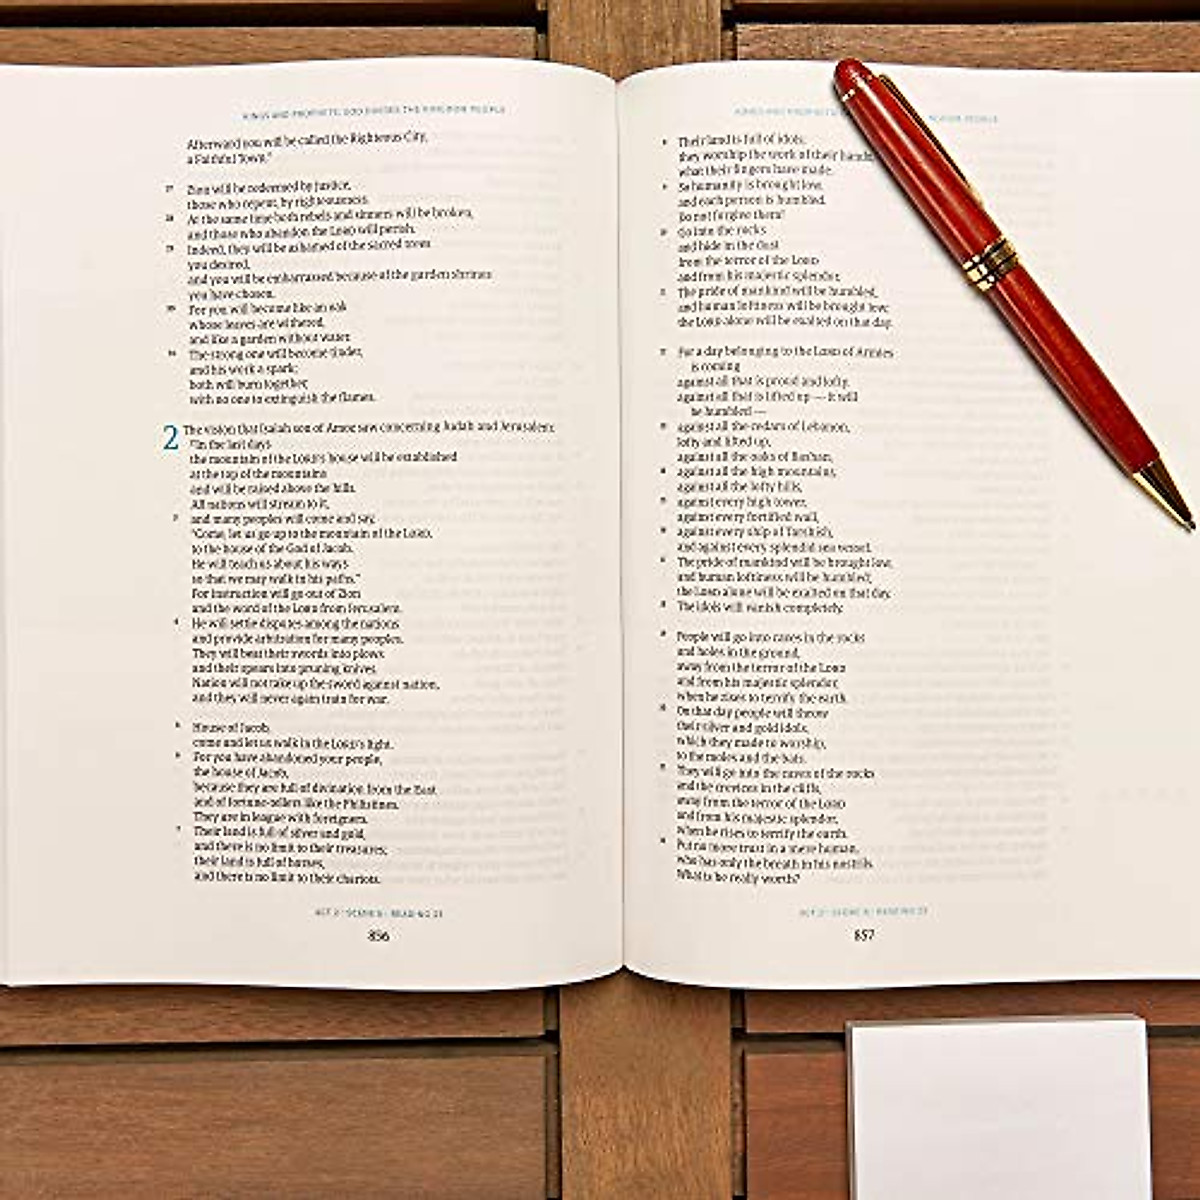 KINGS AND PROPHETS: GOD DIVIDES THE KINGDOM PEOPLE
Afterward you will be called the Righteous City,
a Faithful Town."
27 Zion will be redeemed by justice,
those who repent, by righteousness.
28 At the same time both rebels and sinners will be broken,
and those who abandon the LORD will perish.
29 Indeed, they will be ashamed of the sacred trees
you desired,
and you will be embarrassed because of the garden shrines
you have chosen.
30 For you will become like an oak
whose leaves are withered,
and like a garden without water.
31 The strong one will become tinder,
and his work a spark;
both will burn together,
with no one to extinguish the flames.
2 The vision that Isaiah son of Amoz saw concerning Judah and Jerusalem:
2 In the last days
the mountain of the LORD's house will be established
at the top of the mountains
and will be raised above the hills.
All nations will stream to it,
3 and many peoples will come and say,
"Come, let us go up to the mountain of the LORD,
to the house of the God of Jacob.
He will teach us about his ways
so that we may walk in his paths."
For instruction will go out of Zion
and the word of the LORD from Jerusalem.
4 He will settle disputes among the nations
and provide arbitration for many peoples.
They will beat their swords into plows
and their spears into pruning knives.
Nation will not take up the sword against nation,
and they will never again train for war.
5 House of Jacob,
come and let us walk in the LORD's light.
6 For you have abandoned your people,
the house of Jacob,
because they are full of divination from the East
and of fortune-tellers like the Philistines.
They are in league with foreigners.
7 Their land is full of silver and gold,
and there is no limit to their treasures;
their land is full of horses,
and there is no limit to their chariots.
ACT 3 · SCENE 6 · READING 23
856
KINGS AND PROPHETS PEOPLE
8 Their land is full of idols;
they worship the work of their hands,
what their fingers have made.
9 So humanity is brought low,
and each person is humbled.
Do not forgive them!
10 Go into the rocks
and hide in the dust
from the terror of the LORD
and from his majestic splendor.
11 The pride of mankind will be humbled,
and human loftiness will be brought low;
the LORD alone will be exalted on that day.
12 For a day belonging to the LORD of Armies
is coming
against all that is proud and lofty,
against all that is lifted up — it will
be humbled —
13 against all the cedars of Lebanon,
lofty and lifted up,
against all the oaks of Bashan,
14 against all the high mountains,
against all the lofty hills,
15 against every high tower,
against every fortified wall,
16 against every ship of Tarshish,
and against every splendid sea vessel.
17 The pride of mankind will be brought low,
and human loftiness will be humbled;
the LORD alone will be exalted on that day.
18 The idols will vanish completely.
19 People will go into caves in the rocks
and holes in the ground,
away from the terror of the LORD
and from his majestic splendor,
when he rises to terrify the earth.
20 On that day people will throw
their silver and gold idols,
which they made to worship,
to the moles and the bats.
21 They will go into the caves of the rocks
and the crevices in the cliffs,
away from the terror of the LORD
and from his majestic splendor,
when he rises to terrify the earth.
22 Put no more trust in a mere human,
who has only the breath in his nostrils.
What is he really worth?
ACT 3 · SCENE 6 · READING 23
857